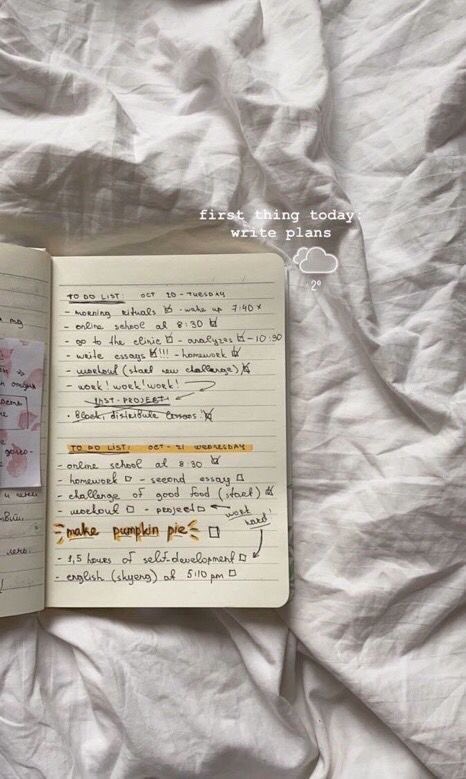 first thing today:
write plans
2°
TO DO LIST: OCT 20 - TUESDAY
- morning rituals ☑ - wake up 7:40 ×
- online school at 8:30 ☑
- go to the clinic ☐ - analyzes ☑ - 10:30
- write essays ☑!!! - homework ☑
- workout (start new challenge) ☑
- work! work! work!
INST-PROJECT
TO DO LIST: OCT - 21 WEDNESDAY
- online school at 8:30 ☑
- homework ☐ - second essay ☐
- challenge of good food (start) ☑
- workout ☐ - project ☐
work hard!
make pumpkin pie ☐
- 1,5 hours of self-development ☐
- english (skyeng) at 5:10 pm ☐